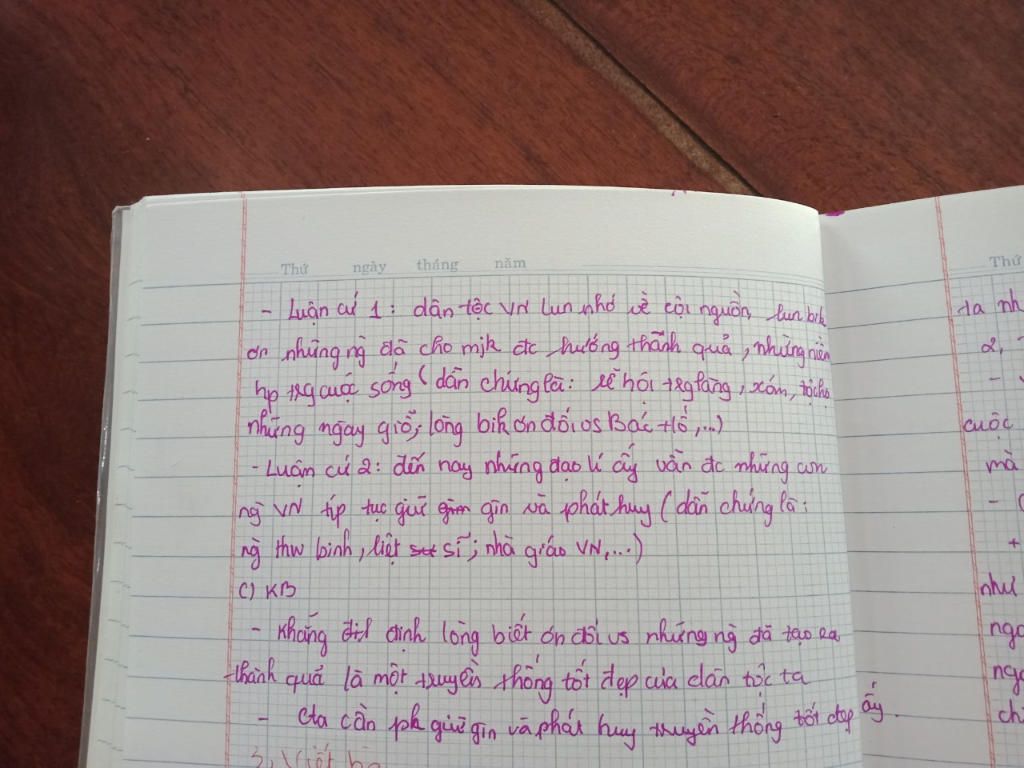 Thứ ngày tháng năm
- Luận cứ 1: dân tộc VN lun nhớ về cội nguồn, lun bik
ơn những ng̀ đã cho mjk đc hưởng thành quả, những niềm
hp trg cuộc sống (dẫn chứng là: lễ hội trg làng, xóm, tộc họ
những ngày giỗ; lòng bik ơn đối os Bác Hồ,...)
- Luận cứ 2: đến nay những đạo lí ấy vẫn đc những con
ng̀ VN típ tục giữ gìn và phát huy (dẫn chứng là:
ng̀ thw binh, liệt sĩ; nhà giáo VN,...)
c) KB
- Khẳng định lòng biết ơn đối vs những ng̀ đã tạo ra
thành quả là một truyền thống tốt đẹp của dân tộc ta
- Cta cần ph giữ gìn và phát huy truyền thống tốt đẹp ấy.
3, Viết
Thứ
ta nh
2,
-
cuộc
mà
-
+
như
ngo
ngo
ch